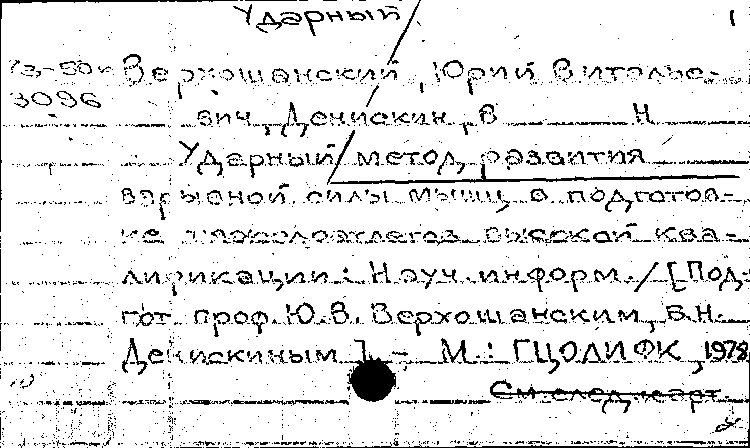 Ударный 1
Верхошанский, Юрий Виталье-
3096
вич, Денискин, В Н
Ударный метод развития
взрывной силы мышц в подготов-
ке тяжелоатлетов высокой ква-
лификации: Науч. информ. / [Под-
гот. проф. Ю.В. Верхошанским, В.Н.
Денискиным]. - М.: ГЦОЛИФК, 1978
См. след. карт.